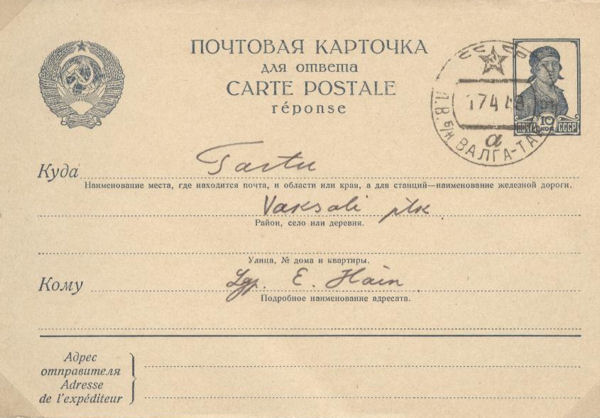 ПОЧТОВАЯ КАРТОЧКА
для ответа
CARTE POSTALE
réponse
17 4 4
ВАЛГА-ТА
а
10
КОП.
СССР
Куда Tartu
Наименование места, где находится почта, и области или края, а для станций—наименование железной дороги.
Vaksali
Район, село или деревня.
Улица, № дома и квартиры.
Кому E. Hain
Подробное наименование адресата.
Адрес
отправителя
Adresse
de l'expéditeur